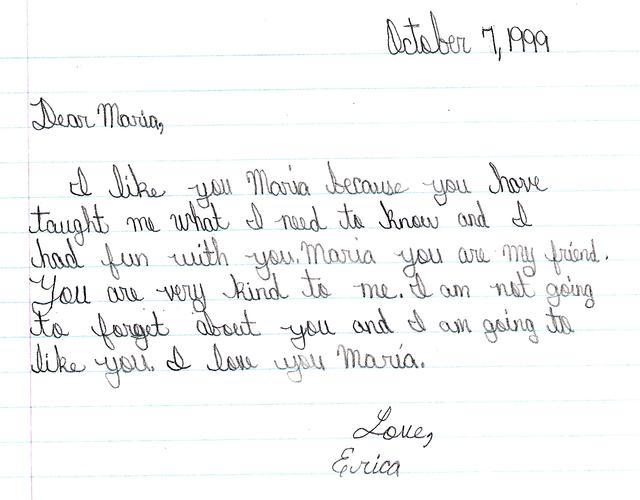 October 7, 1999
Dear Maria,
I like you Maria because you have
taught me what I need to know and I
had fun with you. Maria you are my friend.
You are very kind to me. I am not going
to forget about you and I am going to
like you. I love you Maria.
Love,
Erica